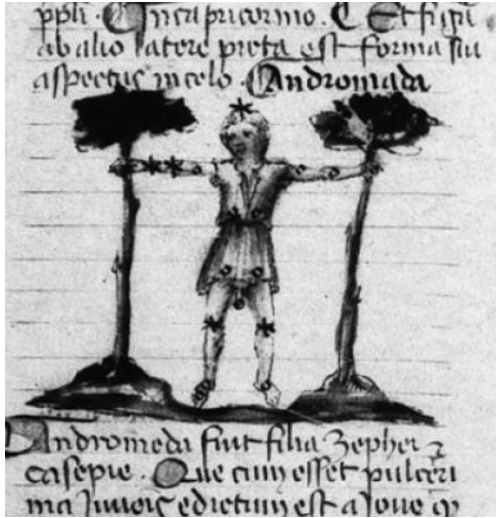 ppli. In capricorno. Et figu
ab alio latere preta est forma siu
aspectus in celo. Andromada
Andromeda fuit filia Zephei et
casepie. Que cum esset pulceri
ma Junois edictum est a Joue q